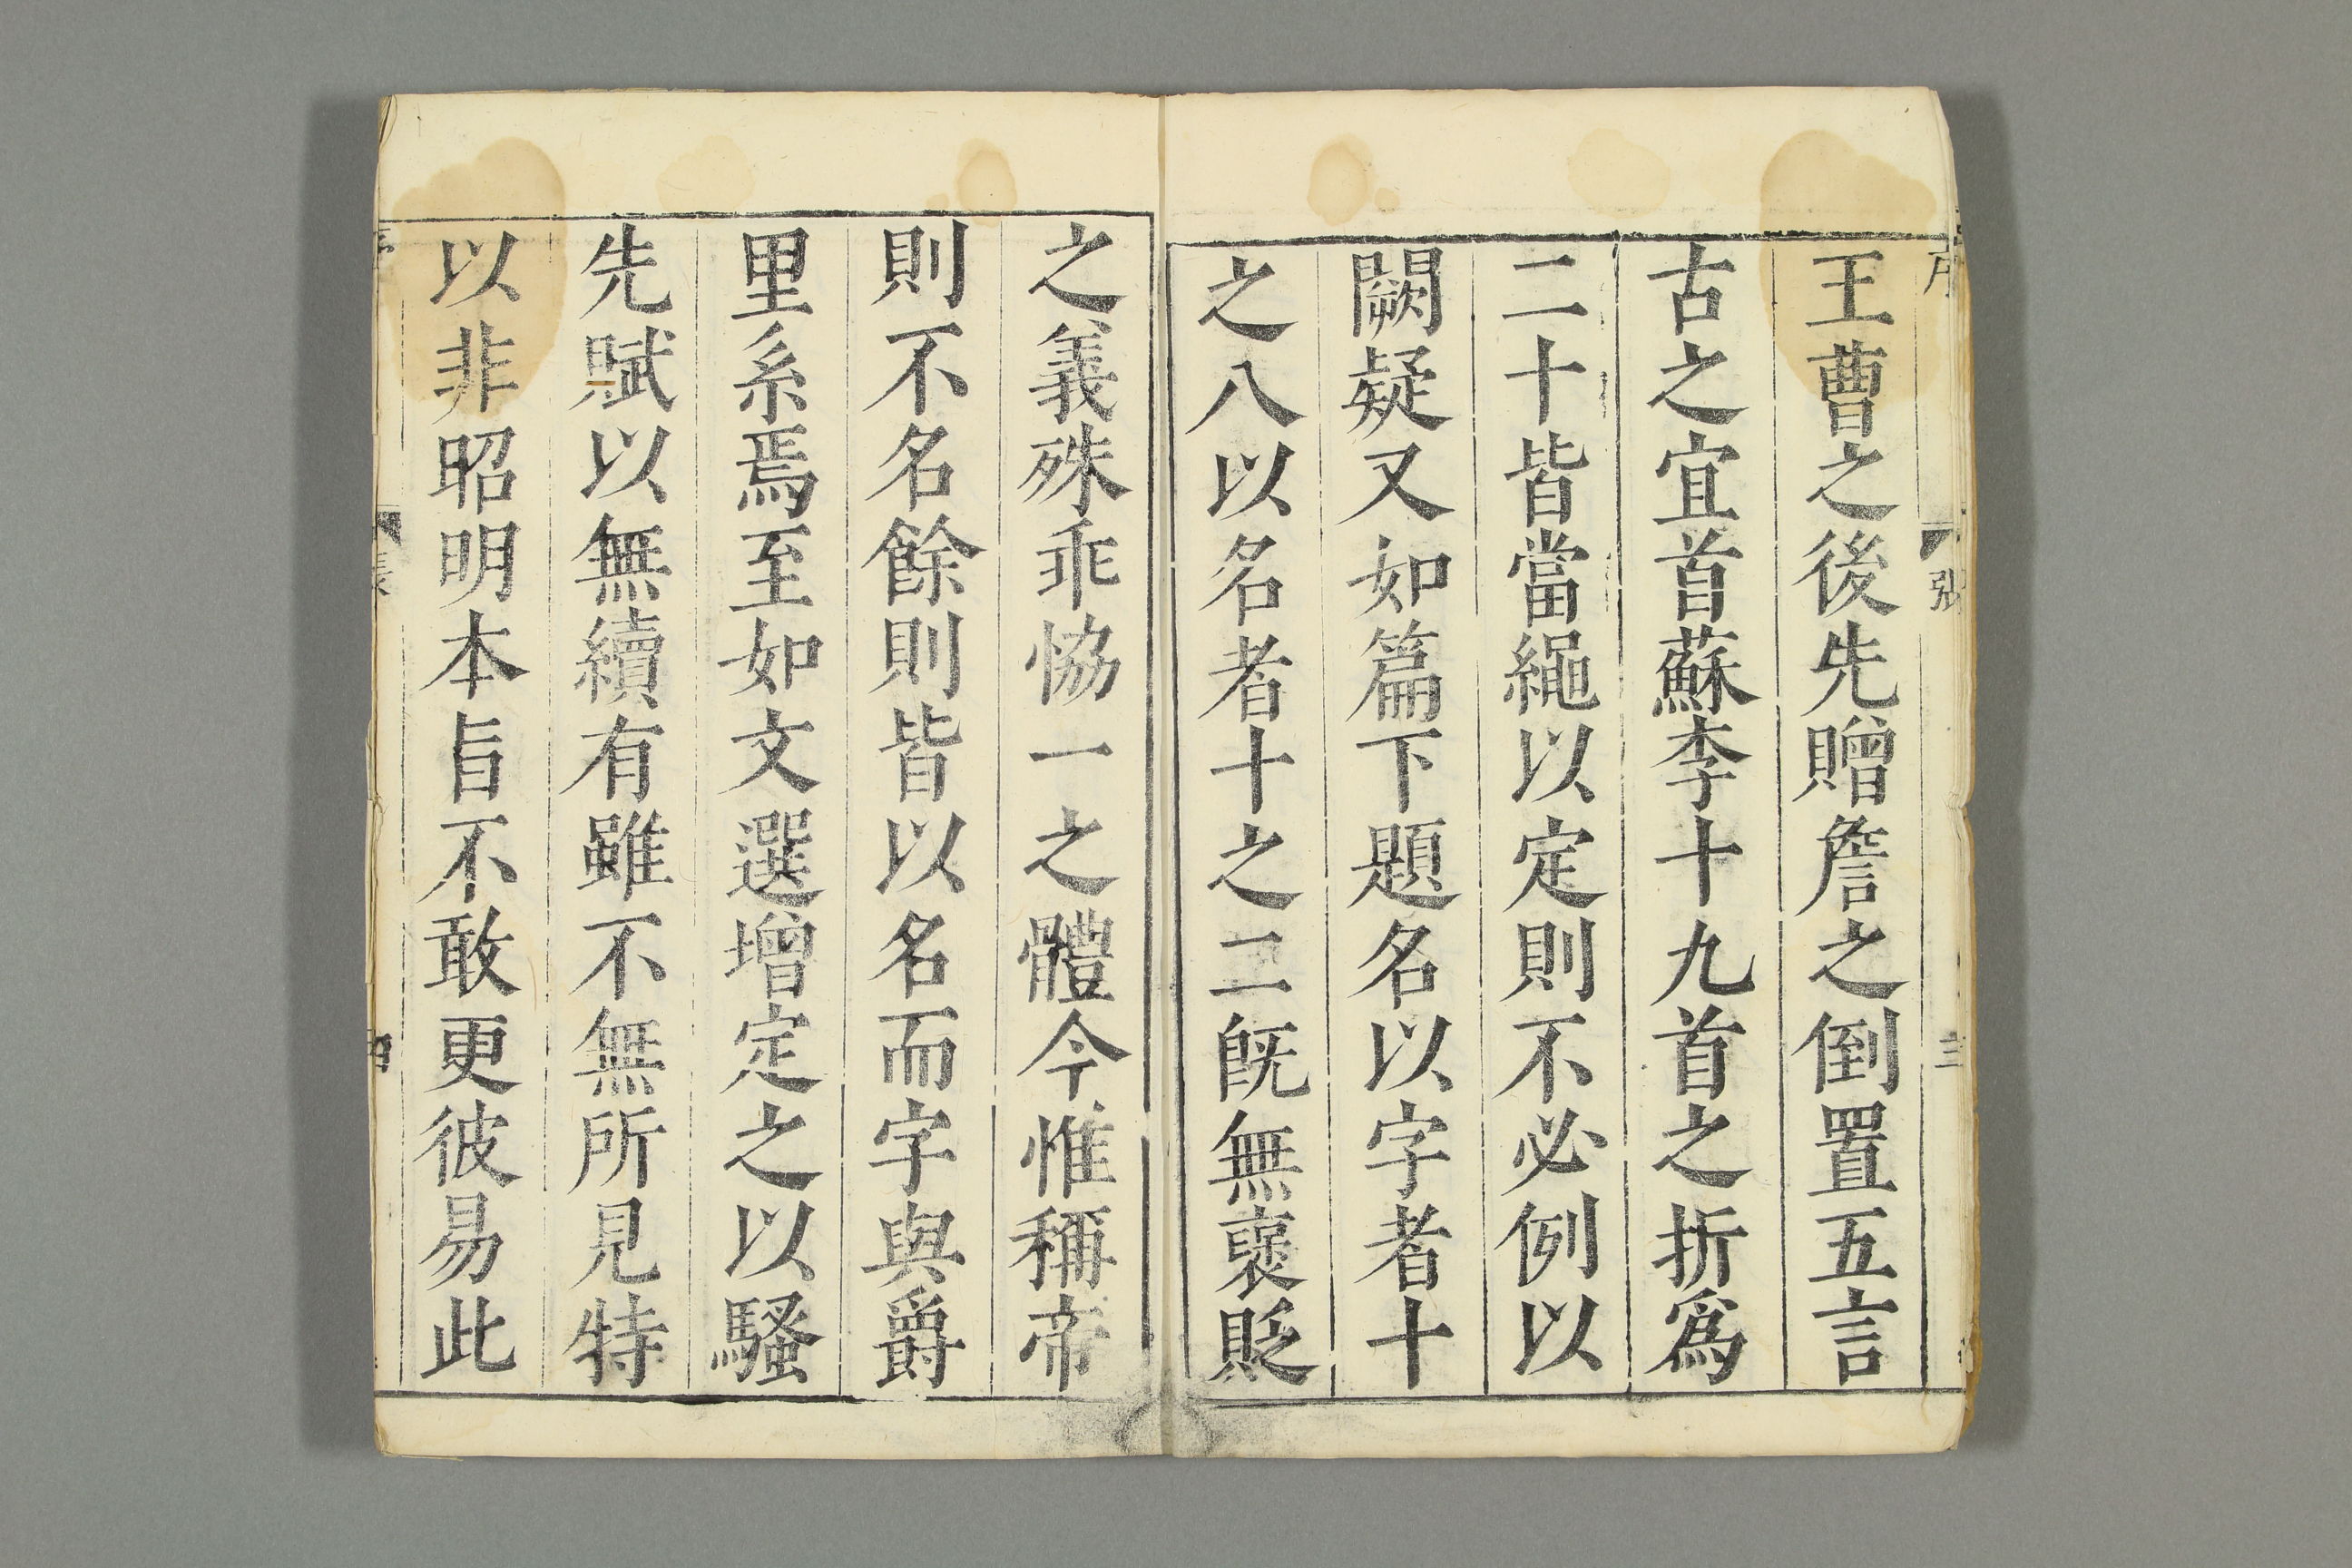 王曹之後先贈詹之倒置五言
古之宜首蘇李十九首之折爲
二十皆當繩以定則不必例以
闕疑又如篇下題名以字者十
之八以名者十之二旣無褒貶
之義殊乖恊一之體今惟稱帝
則不名餘則皆以名而字與爵
里系焉至如文選增定之以騷
先賦以無續有雖不無所見特
以非昭明本旨不敢更彼易此